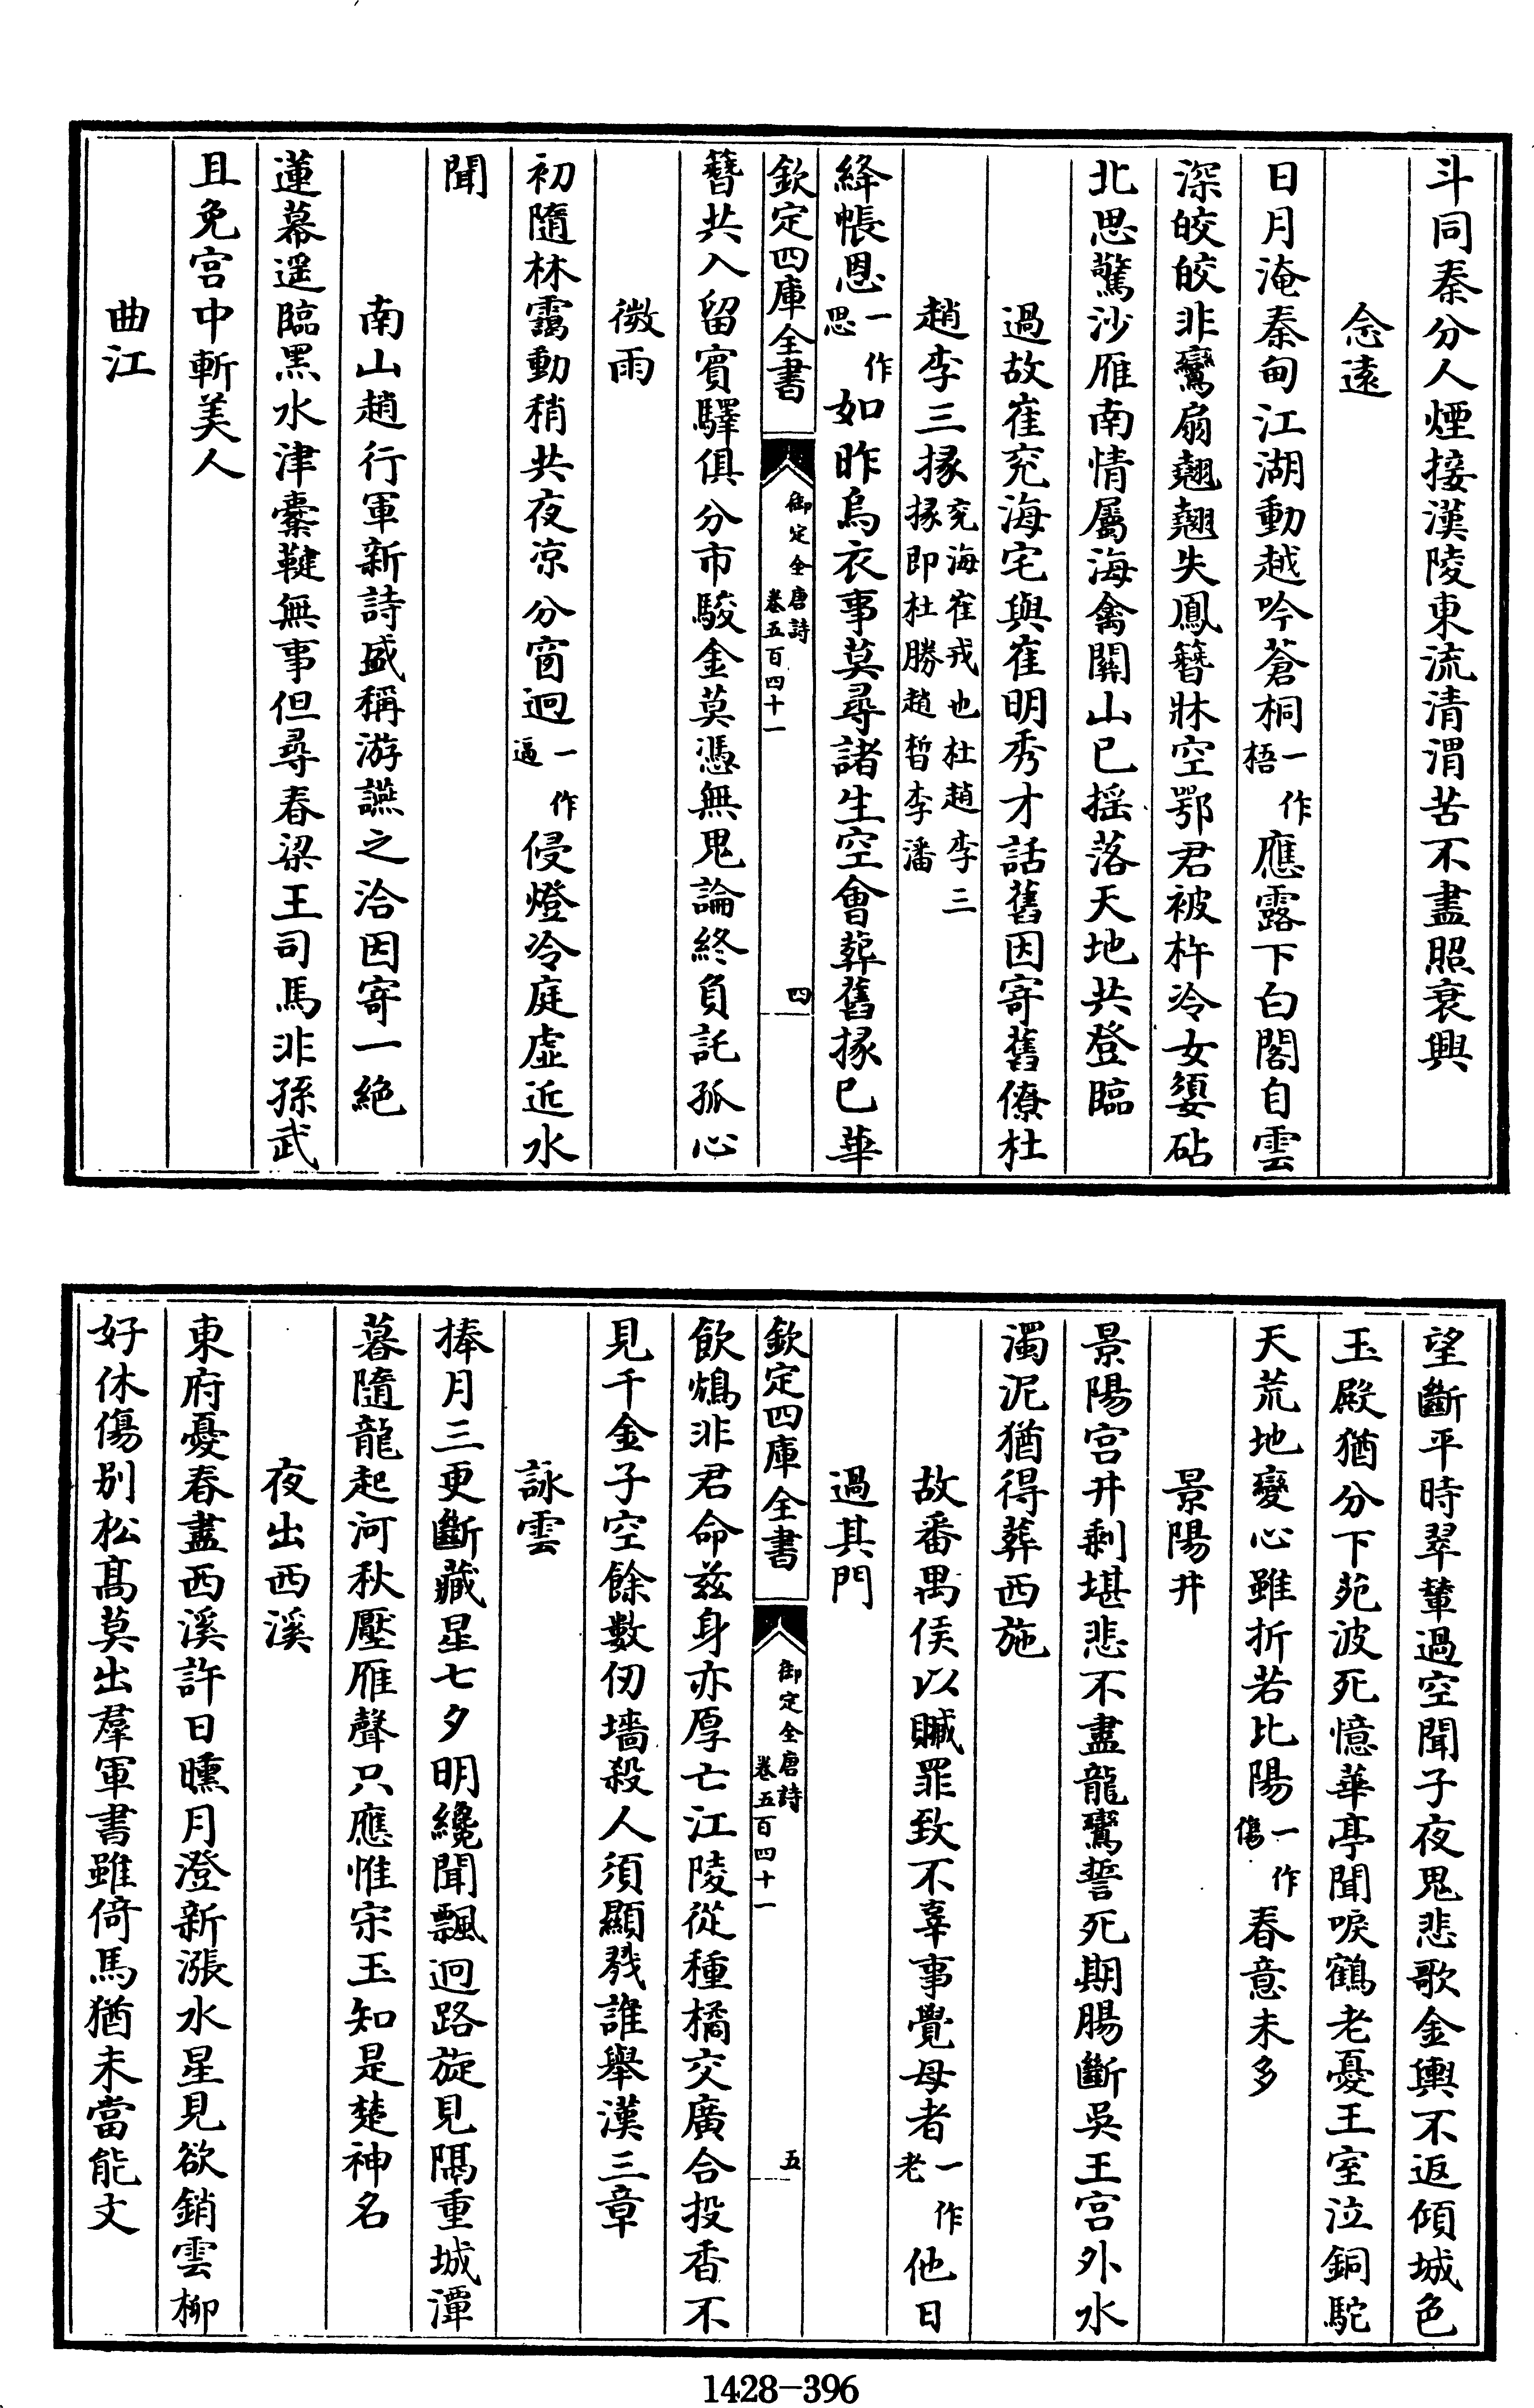 斗同秦分人煙接漢陵東流清渭苦不盡照衰興
念遠
日月淹秦甸江湖動越吟蒼桐一作梧應露下白閣自雲
深皎皎非鸞扇翹翹失鳳簪牀空鄂君被杵冷女嬃砧
北思驚沙雁南情屬海禽關山已搖落天地共登臨
過故崔兖海宅與崔明秀才話舊因寄舊僚杜
趙李三掾兖海崔戎也杜趙李三掾即杜勝趙晳李潘
絳帳恩一作思如昨烏衣事莫尋諸生空會葬舊掾已華
欽定四庫全書
御定全唐詩
卷五百四十一
四
簪共入留賓驛俱分市駿金莫憑無鬼論終負託孤心
微雨
初隨林靄動稍共夜凉分窗迥一作逼侵燈冷庭虛近水
聞
南山趙行軍新詩盛稱游讌之洽因寄一絶
蓮幕遥臨黑水津櫜鞬無事但尋春梁王司馬非孫武
且免宮中斬美人
曲江
望斷平時翠輦過空聞子夜鬼悲歌金輿不返傾城色
玉殿猶分下苑波死憶華亭聞唳鶴老憂王室泣銅駝
天荒地變心雖折若比陽一作傷春意未多
景陽井
景陽宮井剩堪悲不盡龍鸞誓死期腸斷吳王宮外水
濁泥猶得葬西施
故番禺侯以贓罪致不辜事覺母者一作老他日
過其門
欽定四庫全書
御定全唐詩
卷五百四十一
五
飲鴆非君命兹身亦厚亡江陵從種橘交廣合投香不
見千金子空餘數仞墻殺人須顯戮誰舉漢三章
詠雲
捧月三更斷藏星七夕明纔聞飄迥路旋見隔重城潭
暮隨龍起河秋壓雁聲只應惟宋玉知是楚神名
夜出西溪
東府憂春盡西溪許日曛月澄新漲水星見欲銷雲柳
好休傷别松高莫出羣軍書雖倚馬猶未當能文
1428-396